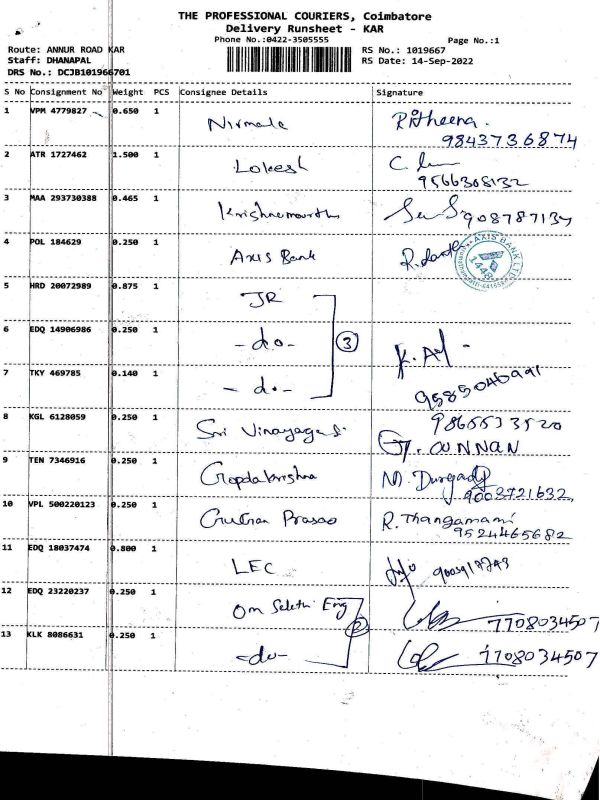 THE PROFESSIONAL COURIERS, Coimbatore
Delivery Runsheet - KAR
Phone No.:0422-3505555
Page No.:1
Route: ANNUR ROAD KAR
RS No.: 1019667
Staff: DHANAPAL
RS Date: 14-Sep-2022
DRS No.: DCJB101966701
S No Consignment No Weight PCS Consignee Details Signature
1 VPM 4779827 0.650 1 Nirmala
9843736874
2 ATR 1727462 1.500 1 Lokesh
9566308132
3 MAA 293730388 0.465 1 Krishnamourthi
4 POL 184629 0.250 1 Axis Bank
AXIS BANK LTD
1448
5 HRD 20072989 0.875 1 JR
6 EDQ 14906986 0.250 1 -do-
3
7 TKY 469785 0.140 1 -do-
9585040991
8 KGL 6128059 0.250 1 Sri Vinayaga
9865533520
9 TEN 7346916 0.250 1 Gopalakrishna
9003721632
10 VPL 500220123 0.250 1 R. Thangamani
9524465682
11 EDQ 18037474 0.800 1 LEC
12 EDQ 23220237 0.250 1 Om Selethi Eng
2
7708034507
13 KLK 8086631 0.250 1 -do-
7708034507